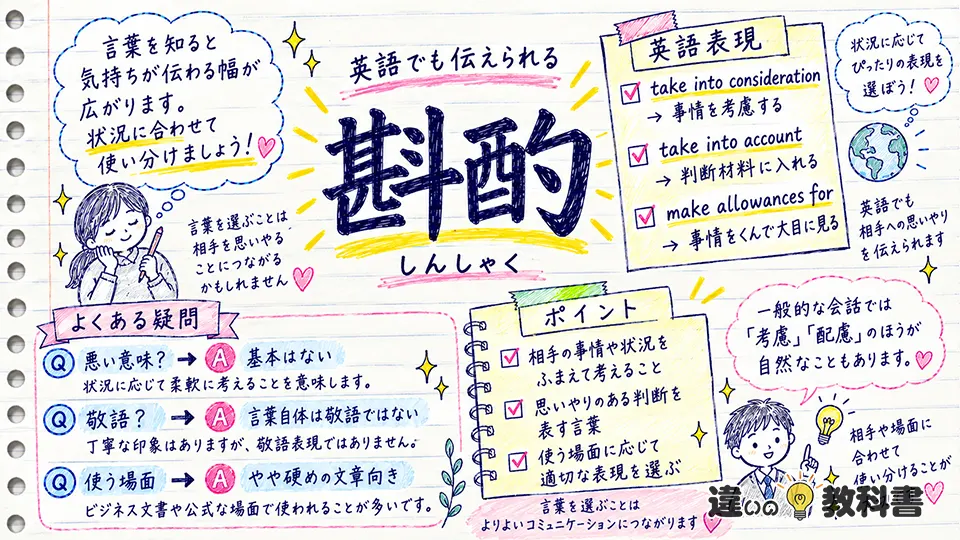 言葉を知ると
気持ちが伝わる幅が
広がります。
状況に合わせて
使い分けましょう!
言葉を選ぶことは
相手を思いやる
ことにつながる
かもしれません
英語でも伝えられる
斟酌
しんしゃく
英語表現
take into consideration
→ 事情を考慮する
take into account
→ 判断材料に入れる
make allowances for
→ 事情をくんで大目に見る
状況に応じて
ぴったりの表現を
選ぼう!
英語でも
相手への思いやり
を伝えられます
よくある疑問
Q 悪い意味? → A 基本はない
状況に応じて柔軟に考えることを意味します。
Q 敬語? → A 言葉自体は敬語ではない
丁寧な印象はありますが、敬語表現ではありません。
Q 使う場面 → A やや硬めの文章向き
ビジネス文書や公式な場面で使われることが多いです。
ポイント
相手の事情や状況を
ふまえて考えること
思いやりのある判断を
表す言葉
使う場面に応じて
適切な表現を選ぶ
言葉を選ぶことは
よりよいコミュニケーションにつながります
一般的な会話では
「考慮」「配慮」のほうが
自然なこともあります。
相手や場面に
合わせて
使い分けることが
違いの教科書